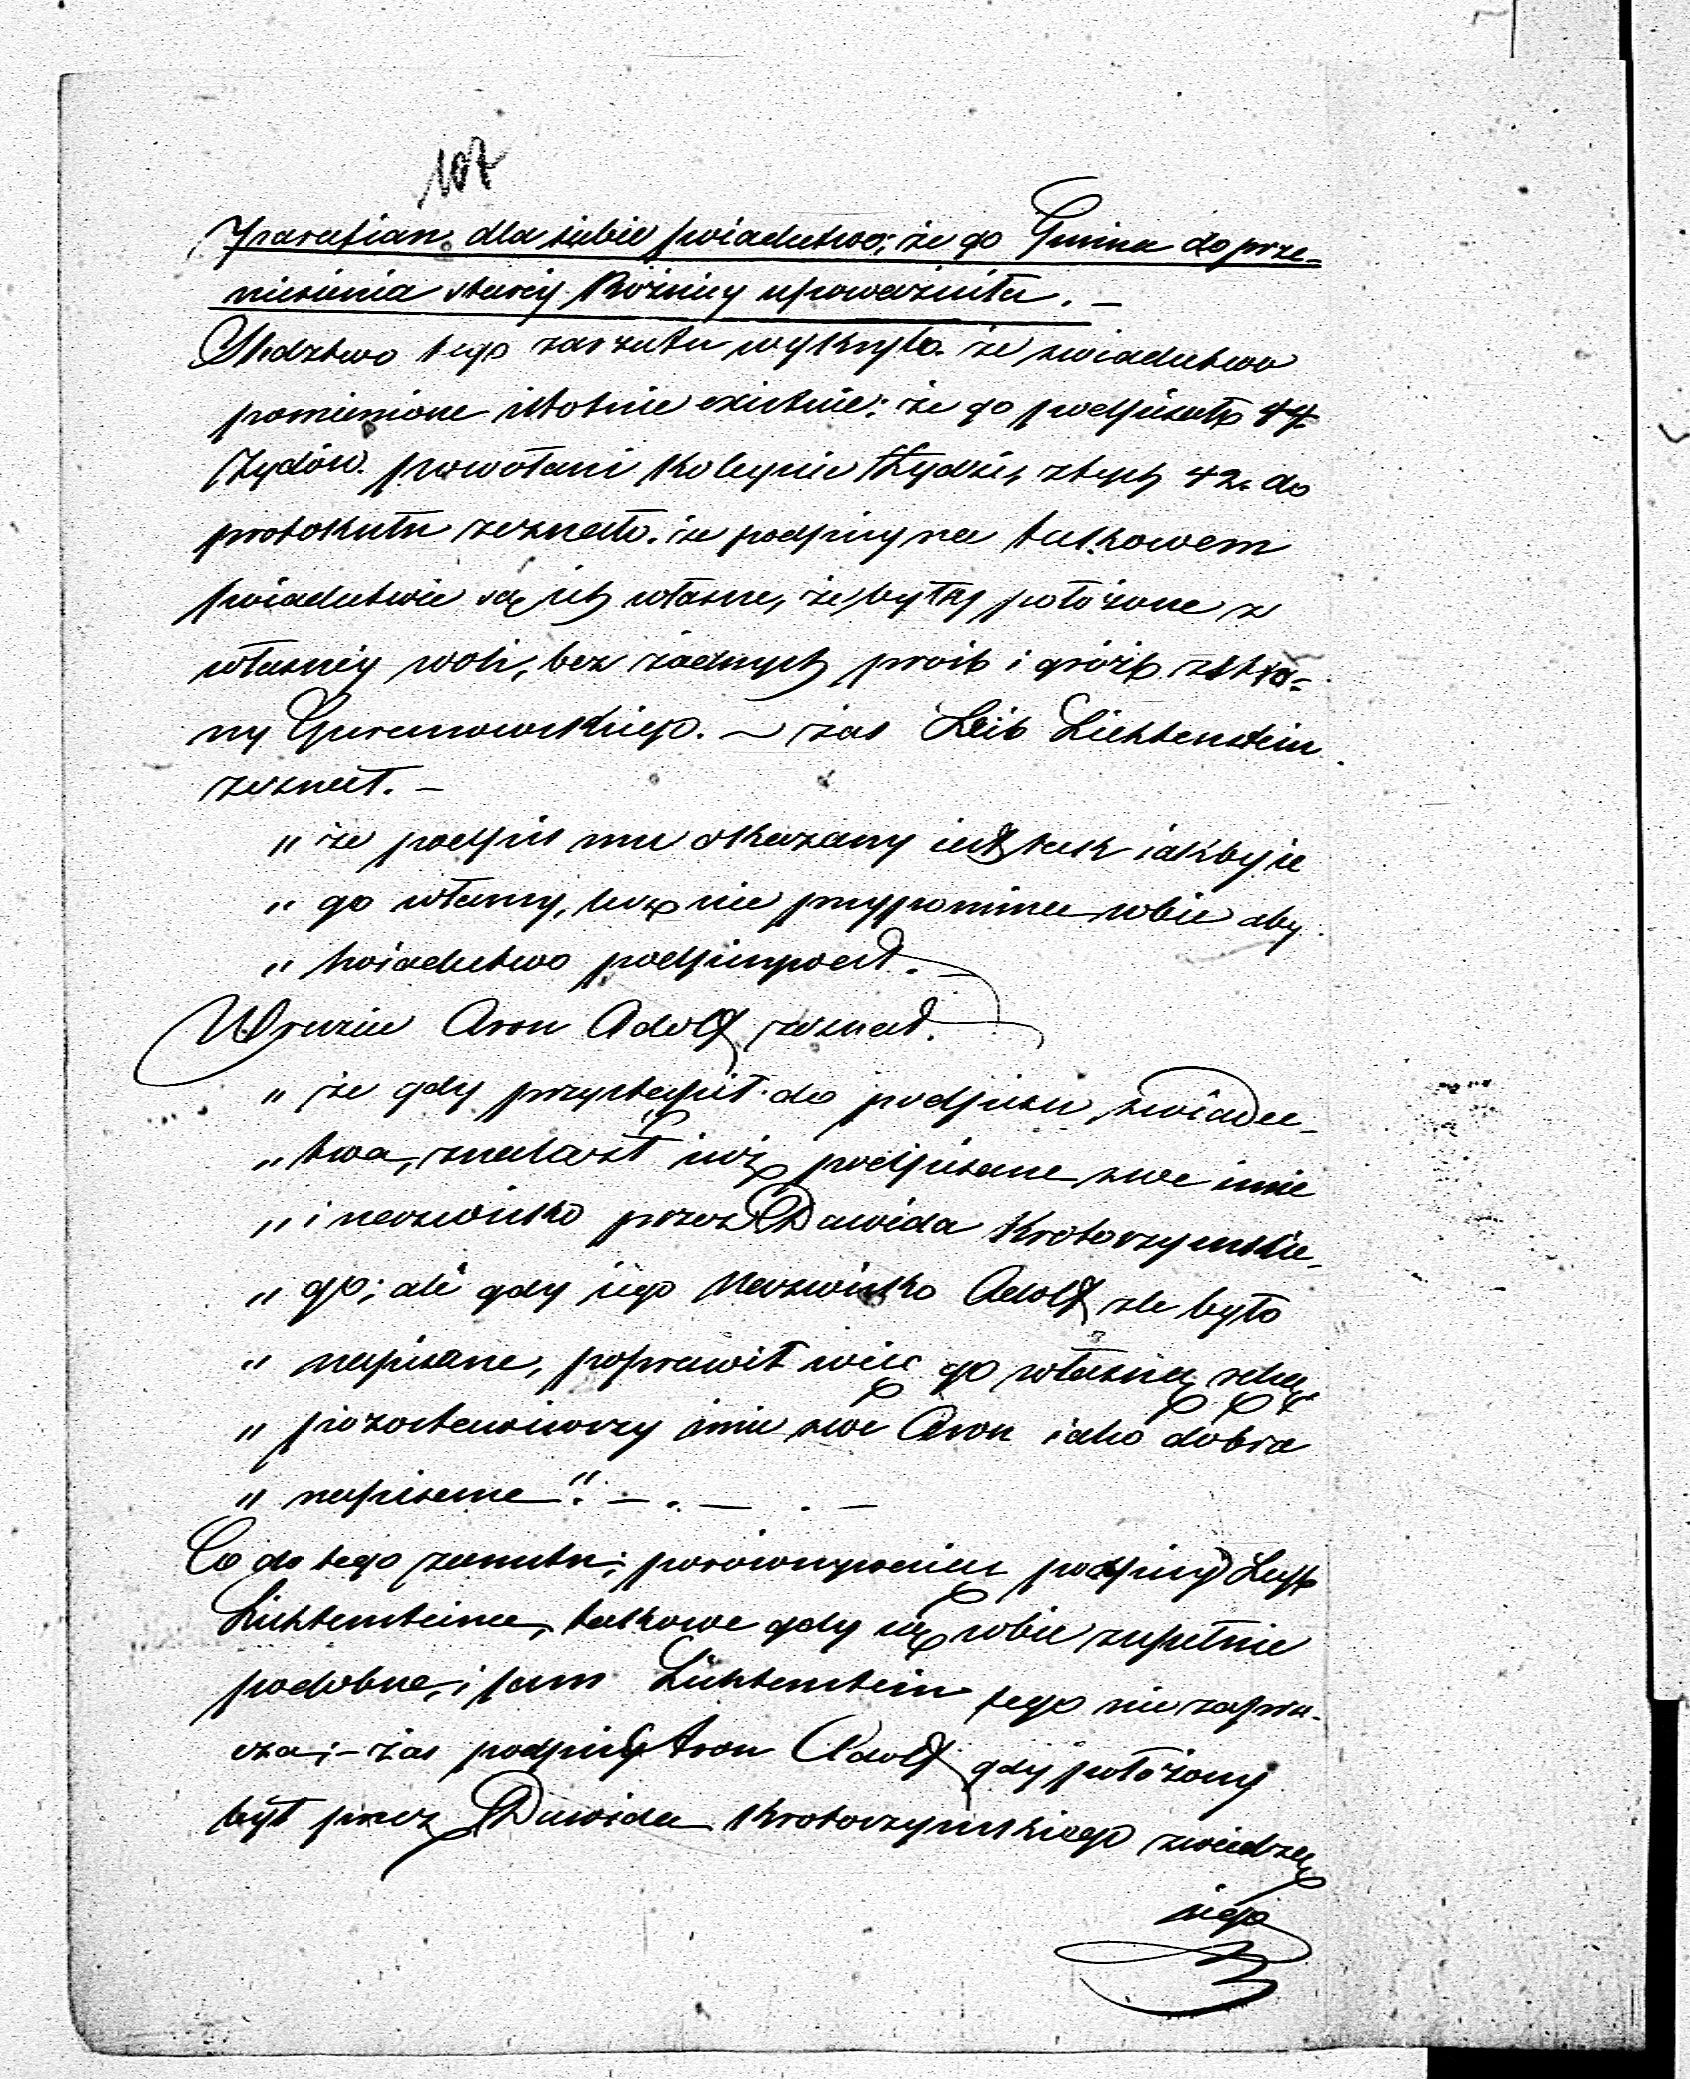 107
Parafian dla siebie swiadectwo; że go Gmina do prze-
niesienia starey Bóżnicy upoważniła. —
Sledztwo tego zarzutu wykryło. że swiadectwo
pomienione istotnie existuie; że go podpisało 44
Żydów. powołani koleynie Żydzi, z tych 42. do
protokułu zeznało. że podpisy na takowem
swiadectwie są ich własne, że były położone z
własney woli, bez żadnych prósb i gróźb ze stro-
ny Guranowskiego. — zas Leib Lichtenstein
zeznał. —
" że podpis mu okazany iest tak iakby ie
" go własny, lecz nie przypomina sobie aby
" swiadectwo podpisywał. —
Wreszcie Aron Adolf zeznał.
" że gdy przystąpił do podpisu swiadec-
" twa, znalazł iuż podpisane swe imie
" i nazwisko przez Dawida Krotoszynskie-
" go; ale gdy iego Nazwisko Adolf zle było
" napisane, poprawił więc go własną ręką
" pozostawiwszy imie swe Aron iako dobrze
" napisane". — . — . —
Co do tego zarzutu; porównywaiąc podpisy Leyb
Lichtensteina, takowe gdy są sobie zupełnie
podobne, i sam Lichtenstein tego nie zaprze-
cza; — zas podpis Aron Adolf gdy położony
był przez Dawida Krotoszynskiego z wiedzą
iego